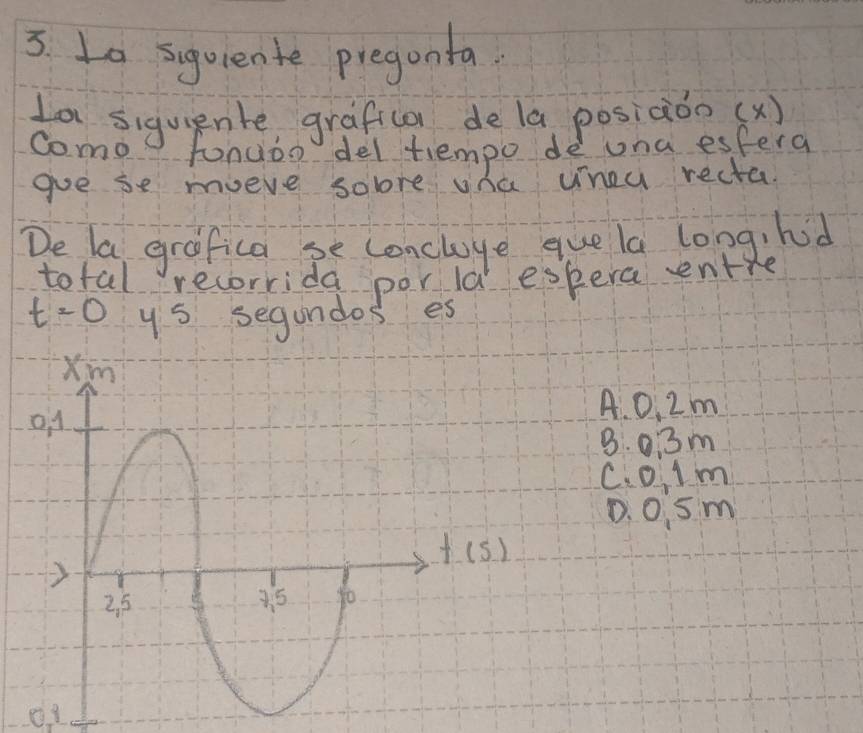 3. La siguiente pregunta.
La siguiente gráfica de la posición (x)
Como función del tiempo de una esfera
que se mueve sobre una línea recta.
De la gráfica se concluye que la longitud
total recorrida por la espera entre
t=0 y 5 segundos es
Xm
0,1
A. 0,2m
B. 0,3m
C. 0,1m
D. 0,5m
t(s)
2,5 5 7,5 10
0,1